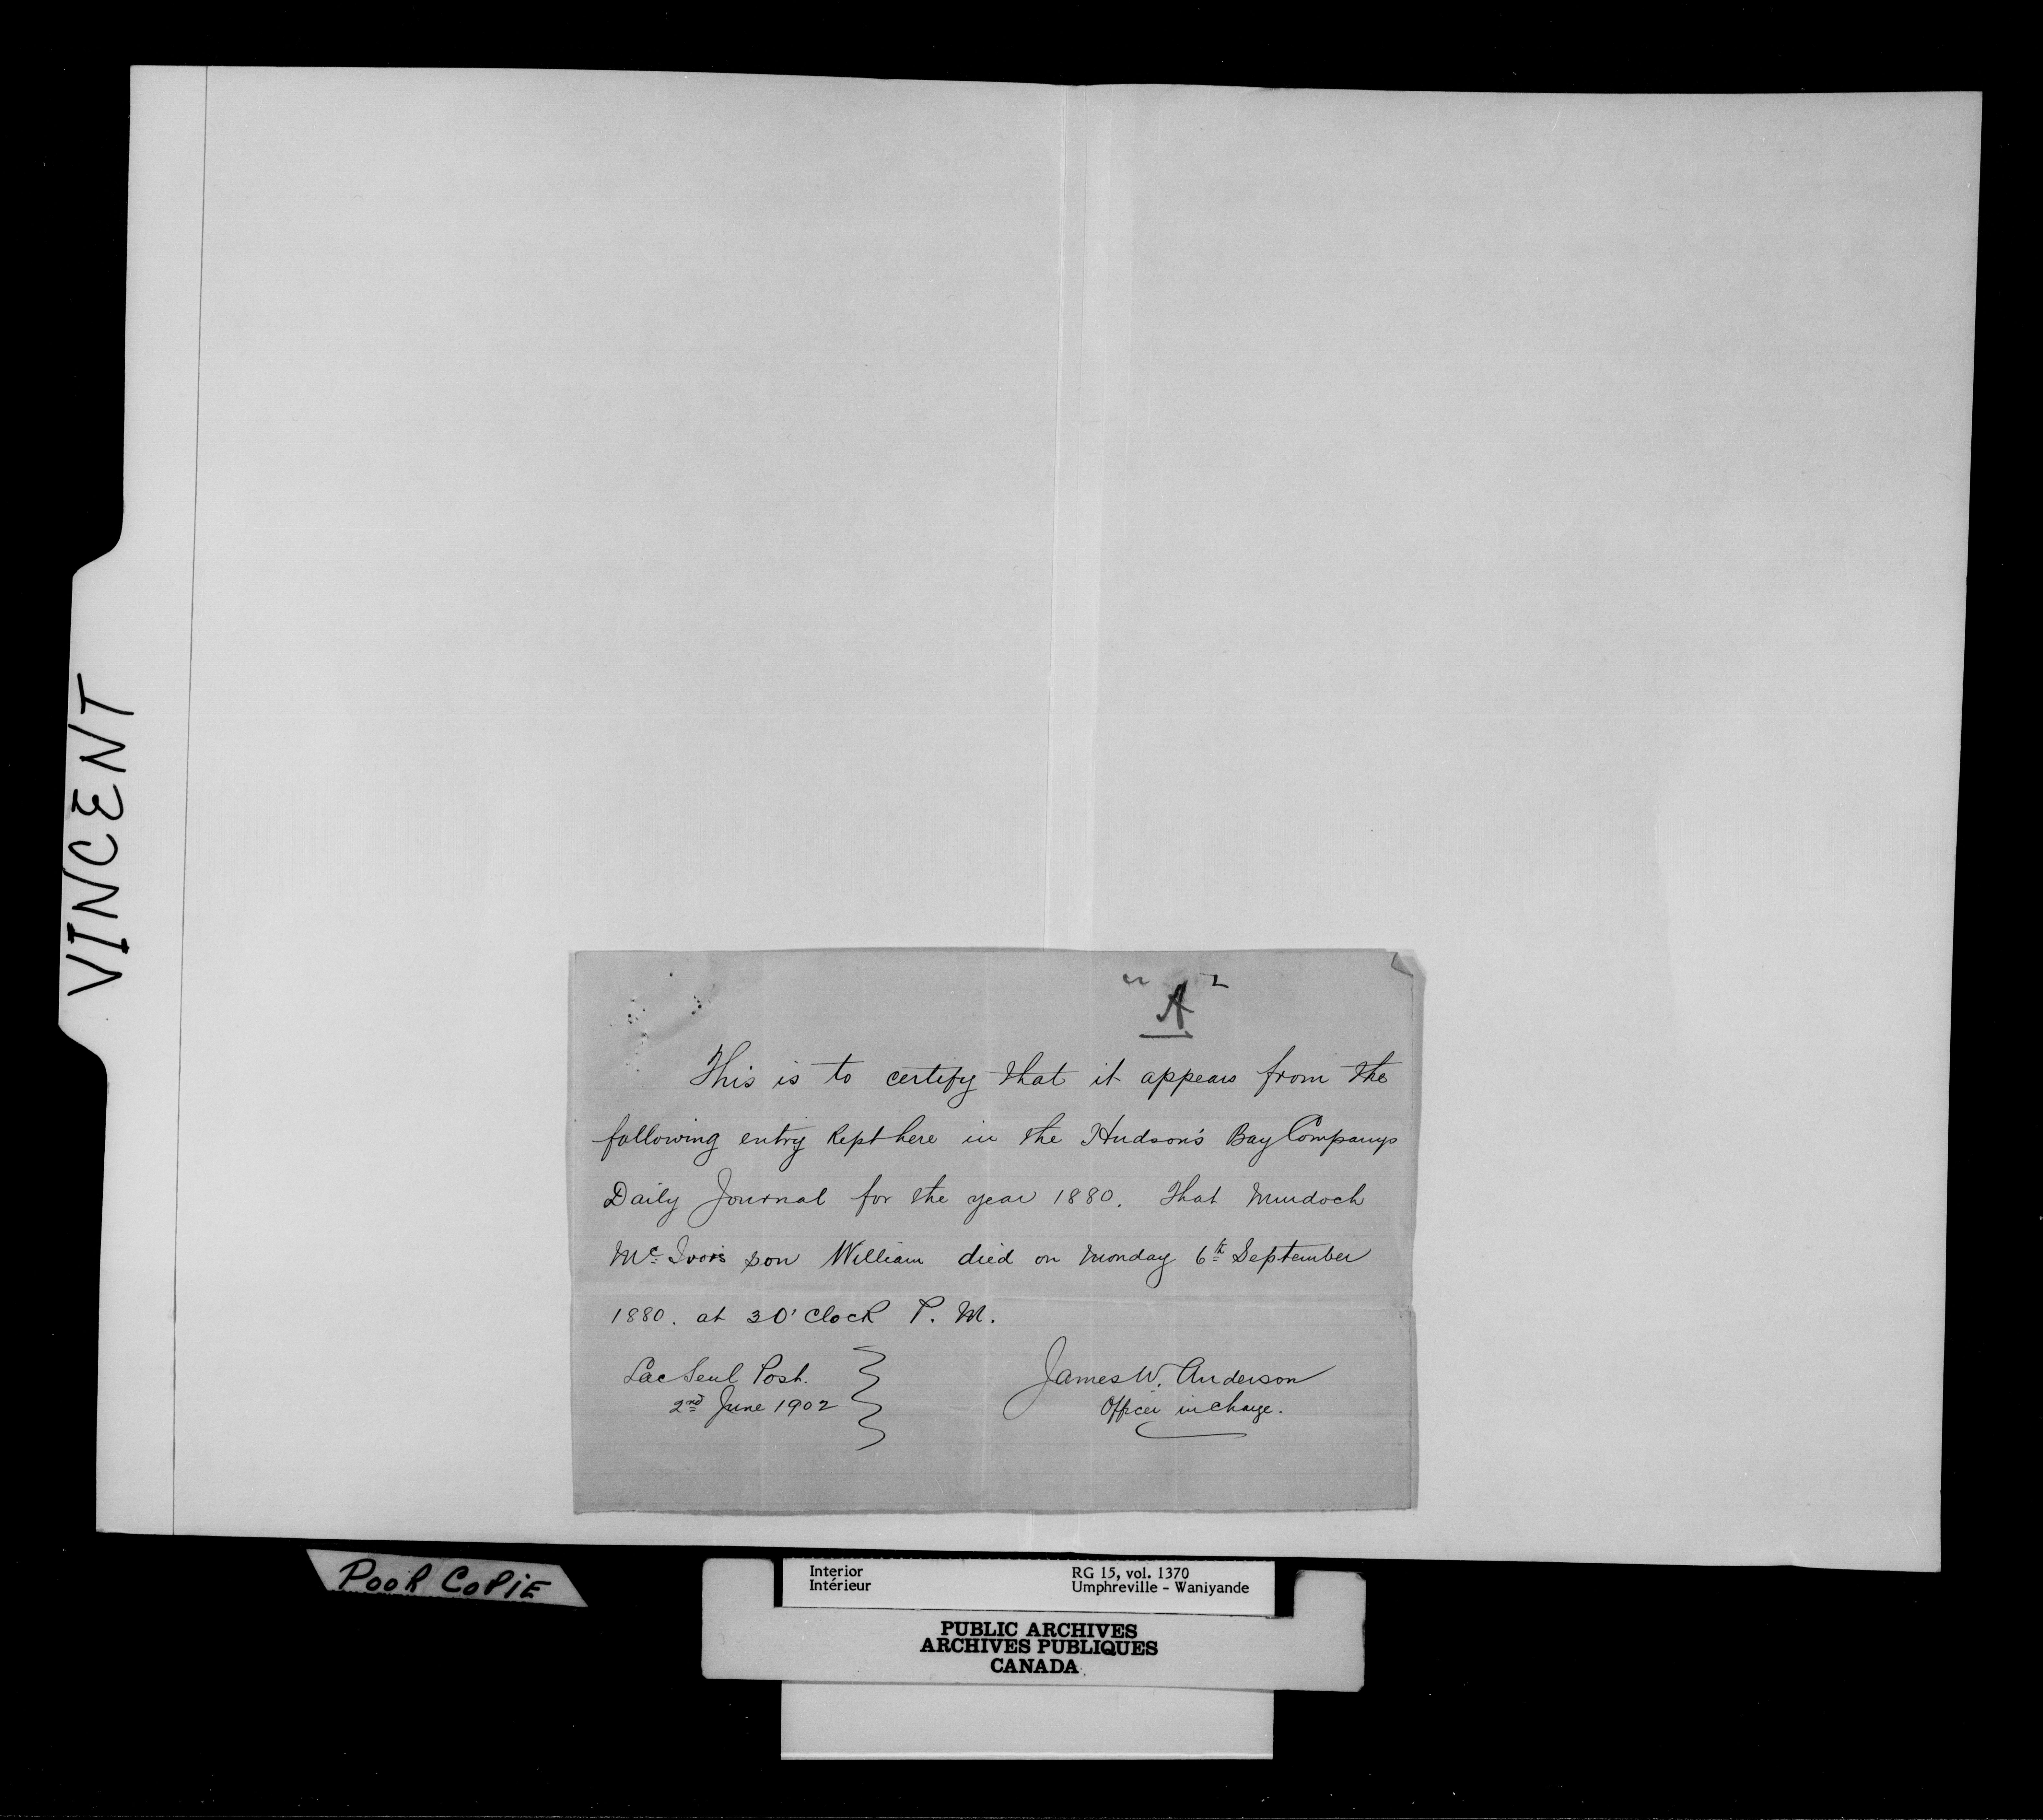 VINCENT
"A"
This is to certify that it appears from the
following entry kept here in the Hudson's Bay Companys
Daily Journal for the year 1880. That Murdoch
Mc Ivors son William died on Monday 6th September
1880. at 3 O'Clock P. M.
Lac Seul Post.
2nd June 1902
James W. Anderson
Officer in charge.
POOR COPIE
Interior
Intérieur
RG 15, vol. 1370
Umphreville - Waniyande
PUBLIC ARCHIVES
ARCHIVES PUBLIQUES
CANADA